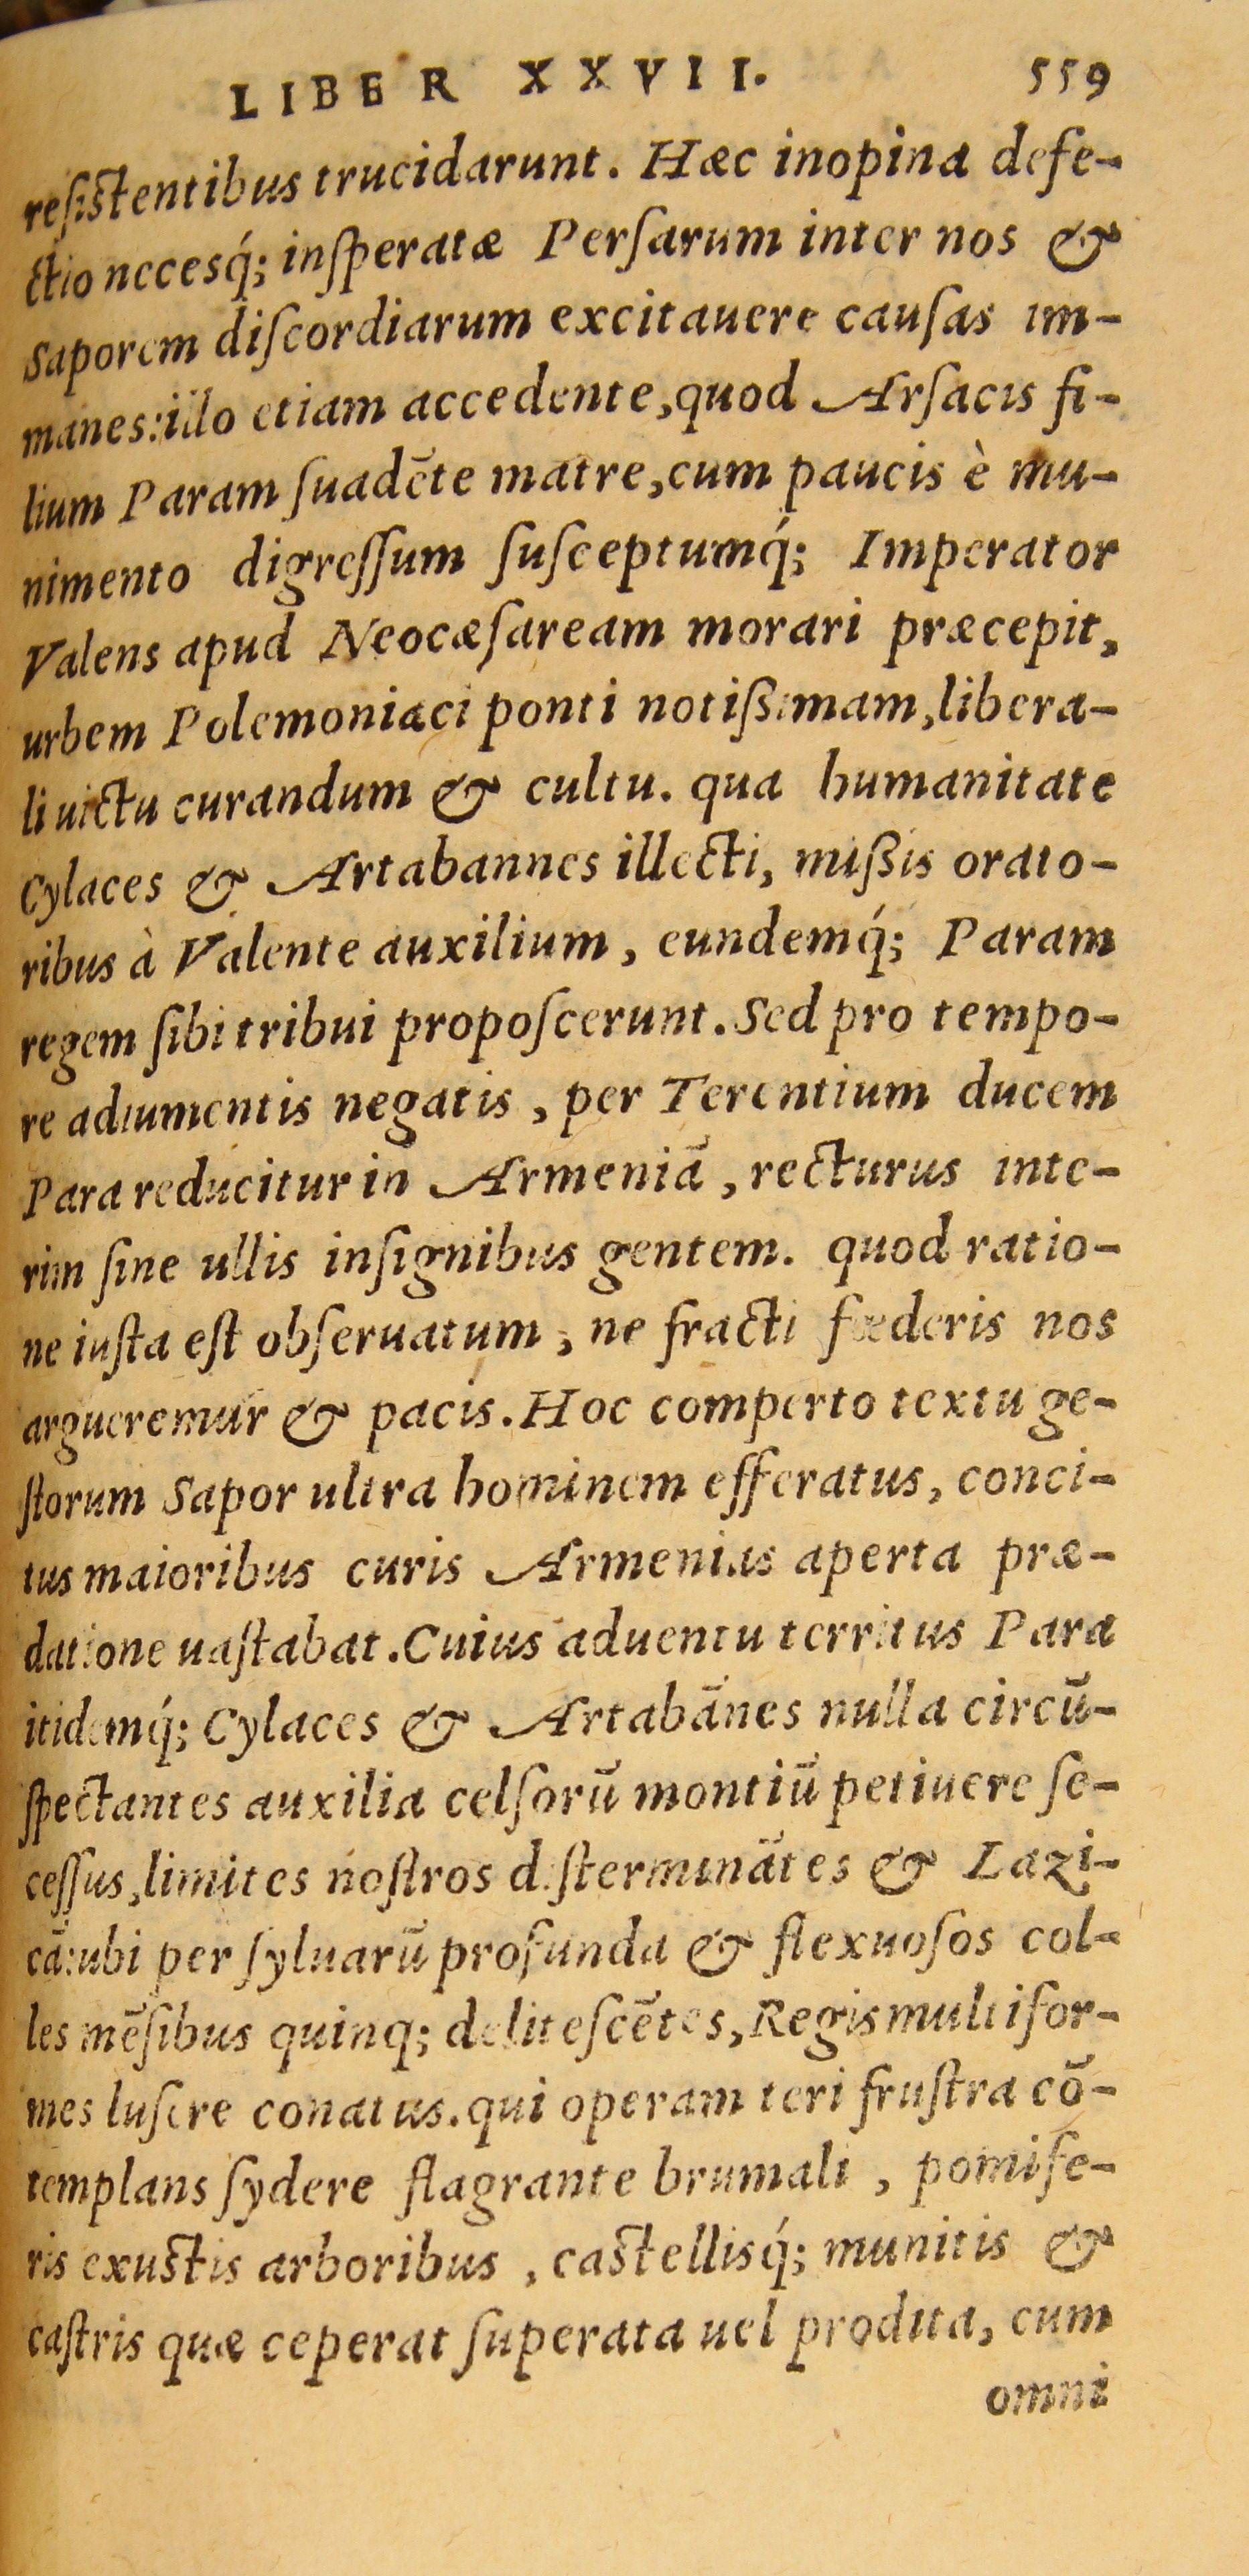 LIBER XXVII. 559
reſiſtentibus trucidarunt. Hæc inopina defe-
ctio necesq́; inſperatæ Perſarum inter nos &
Saporem diſcordiarum excitauere cauſas im-
manes: illo etiam accedente, quod Arſacis fi-
lium Param ſuadẽte matre, cum paucis è mu-
nimento digreſſum ſuſceptumq́; Imperator
Valens apud Neocæſaream morari præcepit,
urbem Polemoniaci ponti notißimam, libera-
li uictu curandum & cultu. qua humanitate
Cylaces & Artabannes illecti, mißis orato-
ribus à Valente auxilium, eundemq́; Param
regem ſibi tribui propoſcerunt. Sed pro tempo-
re adiumentis negatis, per Terentium ducem
Para reducitur in Armeniã, recturus inte-
rim ſine ullis inſignibus gentem. quod ratio-
ne iuſta eſt obſeruatum, ne fracti fœderis nos
argueremur & pacis. Hoc comperto textu ge-
ſtorum Sapor ultra hominem efferatus, conci-
tus maioribus curis Armenias aperta præ-
datione uaſtabat. Cuius aduentu territus Para
itidemq́; Cylaces & Artabãnes nulla circũ-
ſpectantes auxilia celſorũ montiũ petiuere ſe-
ceſſus, limites noſtros diſterminãtes & Lazi-
cã: ubi per ſyluarũ profunda & flexuoſos col-
les mẽſibus quinq; deliteſcẽtes, Regis multifor-
mes luſere conatus. qui operam teri fruſtra cõ-
templans ſydere flagrante brumali, pomife-
ris exuſtis arboribus, caſtellisq́; munitis &
caſtris quæ ceperat ſuperata uel prodita, cum
omni